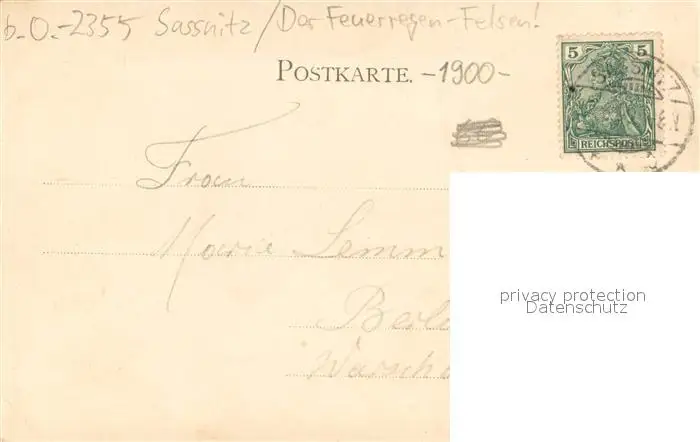 b-O.-2355 Sassnitz/Der Feuerregen-Felsen!
POSTKARTE. -1900-
5 5
REICHSPOST
Frau
Marie Lemm
Berl
Warsch
privacy protection
Datenschutz